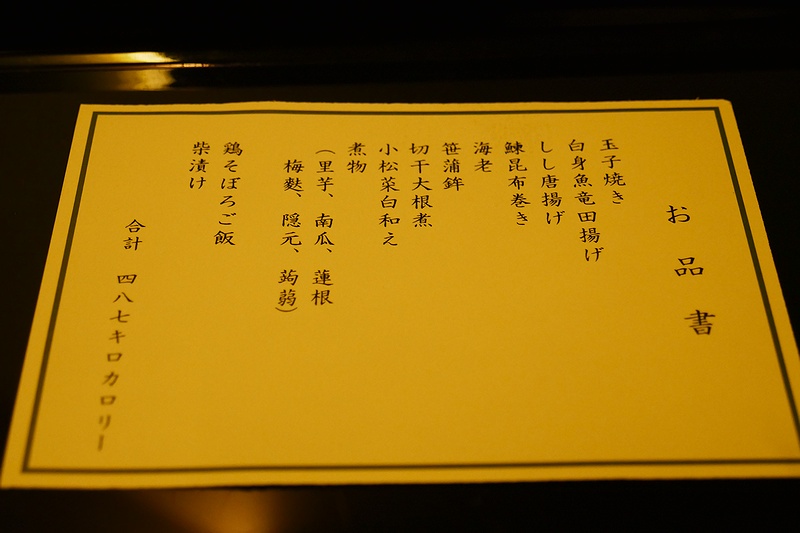 お品書
玉子焼き
白身魚竜田揚げ
しし唐揚げ
鰊昆布巻き
海老
笹蒲鉾
切干大根煮
小松菜白和え
煮物
（里芋、南瓜、蓮根
梅麩、隠元、蒟蒻）
鶏そぼろご飯
柴漬け
合計 四八七キロカロリー